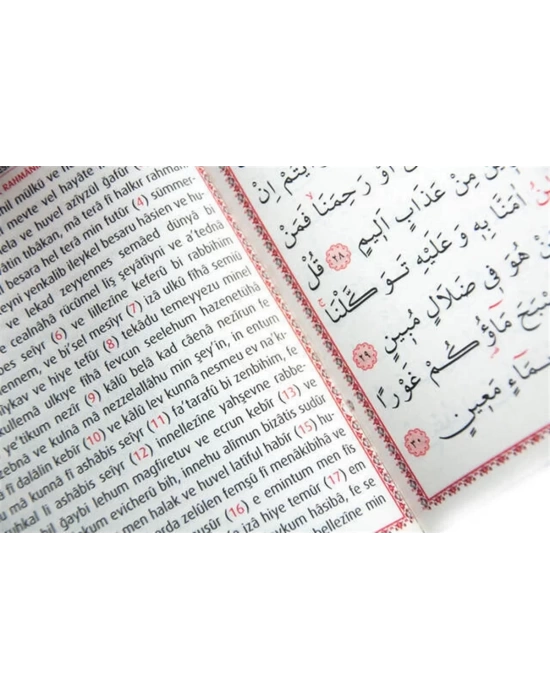 RAHMANİ
mil mülkü ve
meyte vel hayâte
ela ve huvel azîyzül gafûr
tıbâkan, mâ terâ fî halkır rahmâ
besara hel terâ min futûr (4) sümmer-
eyni yenkalib ileykel besaru hâsien ve hu-
ve lekad zeyyennes semâed dünyâ bi
cealnâhâ rücûmel liş şeyâtîyni ve a'tednâ
bes seîyr (6) ve lillezîne keferû bi rabbihim
ennem, ve bi'sel mesîyr (7) izâ ulkû fîhâ semiû
îykav ve hiye tefûr (8) tekâdu temeyyezu minel
küllemâ ulkıye fîhâ fevcun seelehum hazenetühâ
ye'tikum nezîr (9) kâlû belâ kad câenâ nezîrun fe
zebnâ ve kulnâ mâ nezzelallâhu min şey'in, in entum
fî dalâlin kebîr (10) ve kâlû lev kunnâ nesmeu ev na'k
mâ kunnâ fî ashâbis seîyr (11) fa'terafû bi zenbihim, fe
uhkal li ashâbis seîyr (12) innellezîne yahşevne rabbe-
bil ğaybi lehum magfiretuv ve ecrun kebîr (13) ve
kum evicherû bih, innehu alîmun bizâtis sudûr
men halak ve huvel latîful habîr (15) hu-
arda zelûlen femşû fî menâkibihâ ve
nuşûr (16) e emintum men fis
izâ hiye temûr (17) em
aykum hâsibâ, fe se
bellezîne min
اِنْ
اَوْ رَحِمَنَا فَمَنْ
مِنْ عَذَابٍ اَلِيمٍ ٢٨ قُلْ
اٰمَنَّا بِه۪ وَعَلَيْهِ تَوَكَّلْنَا
هُوَ فِي ضَلَالٍ مُبِينٍ ٢٩
مَاؤُكُمْ غَوْرًا
مَعِينٍ ٣٠